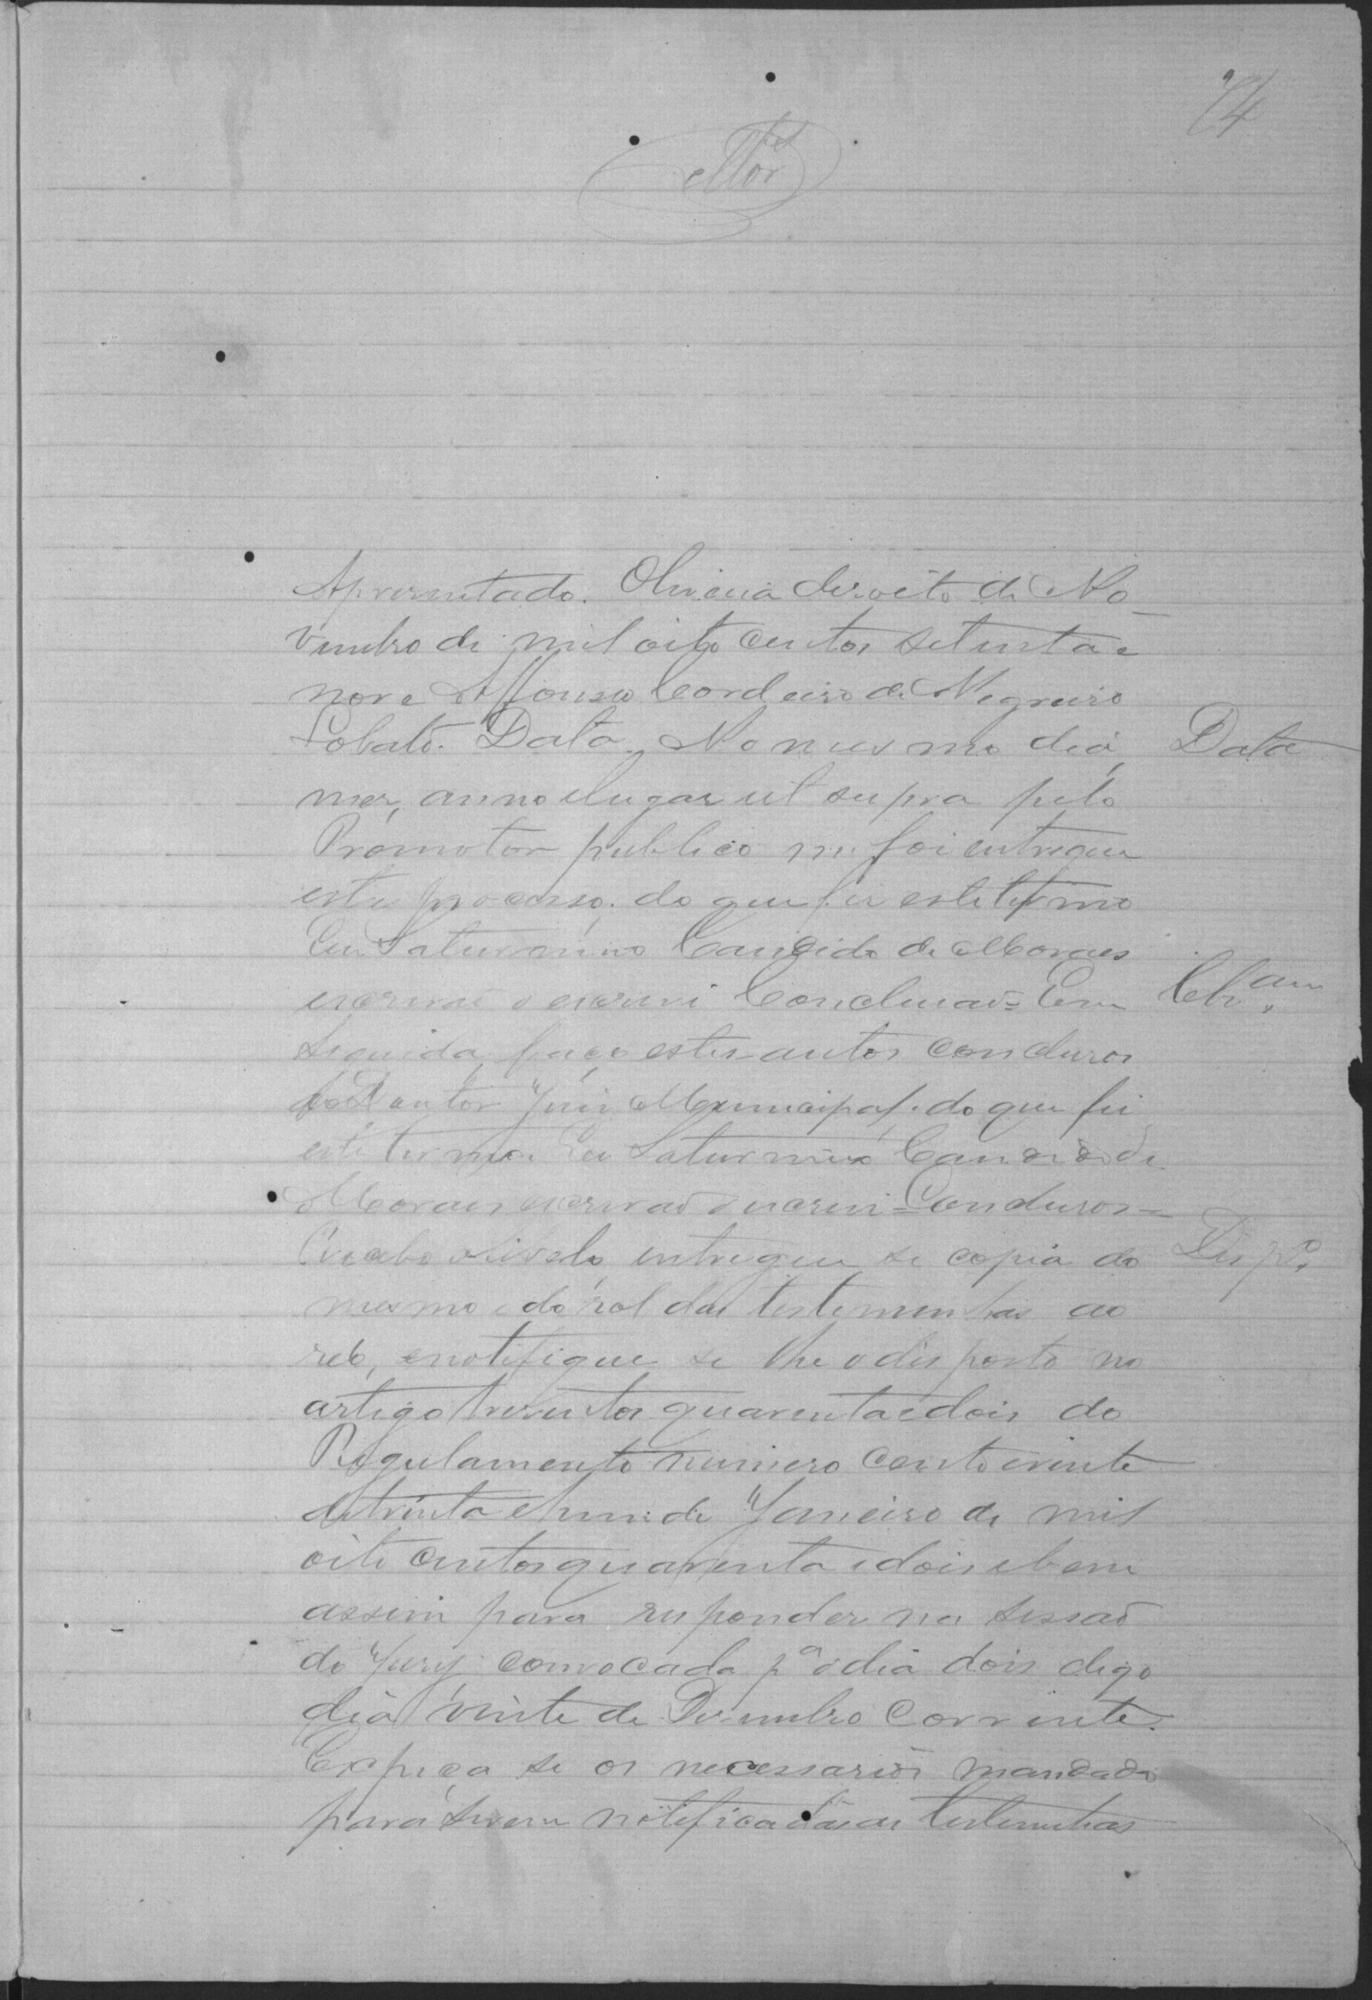 74
Moraes
Apresentado. Oliveira desoito de No-
vembro de mil oito centos setenta e
nove Affonso Cordeiro de Negreiros
Lobato. Data. No mesmo dia,
Data
mez, anno e lugar ut supra pelo
Promotor publico me foi entregue
este processo; do que fiz este termo
Eu Saturnino Candido de Moraes
escrivaõ o escrevi Conclusaõ = Em
Clz.am
seguida faço estes autos conclusos
ao Doutor Juiz Municipal; do que fiz
este termo. Eu Saturnino Candido de
Moraes escrivaõ o escrevi = Conclusos =
Recebo o libello, entregue se copia do
Desp.o
mesmo e do rol das testemunhas ao
reo, e notifique se lhe o disposto no
artigo tresentos quarenta e dois do
Regulamento numero cento e vinte
de trinta e hum de Janeiro de mil
oito centos quarenta e dois e bem
assim para responder na sessaõ
do Jury convocada p.a o dia dois digo
dia vinte de Desembro corrente.
Expeça se os necessarios mandados
para serem notificadas as testemunhas